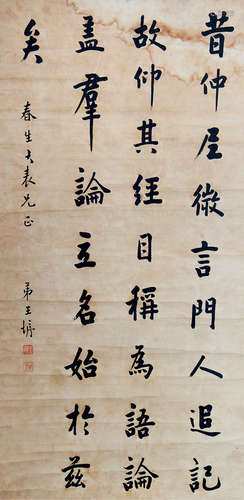 昔仲尼微言門人追記
故仰其經目稱為語論
盖羣論立名始於兹
矣
春生大表兄正
弟王